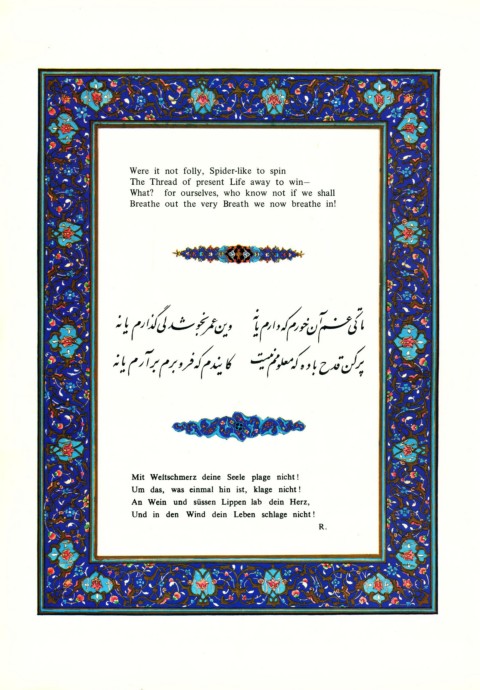 Were it not folly, Spider-like to spin
The Thread of present Life away to win—
What? for ourselves, who know not if we shall
Breathe out the very Breath we now breathe in!
تا کی غم آن خورم که دارم یا نه وین عمر بخوشدلی گذارم یا نه
پرکن قدح باده که معلومم نیست کایندم که فرو برم برآرم یا نه
Mit Weltschmerz deine Seele plage nicht!
Um das, was einmal hin ist, klage nicht!
An Wein und süssen Lippen lab dein Herz,
Und in den Wind dein Leben schlage nicht!
R.